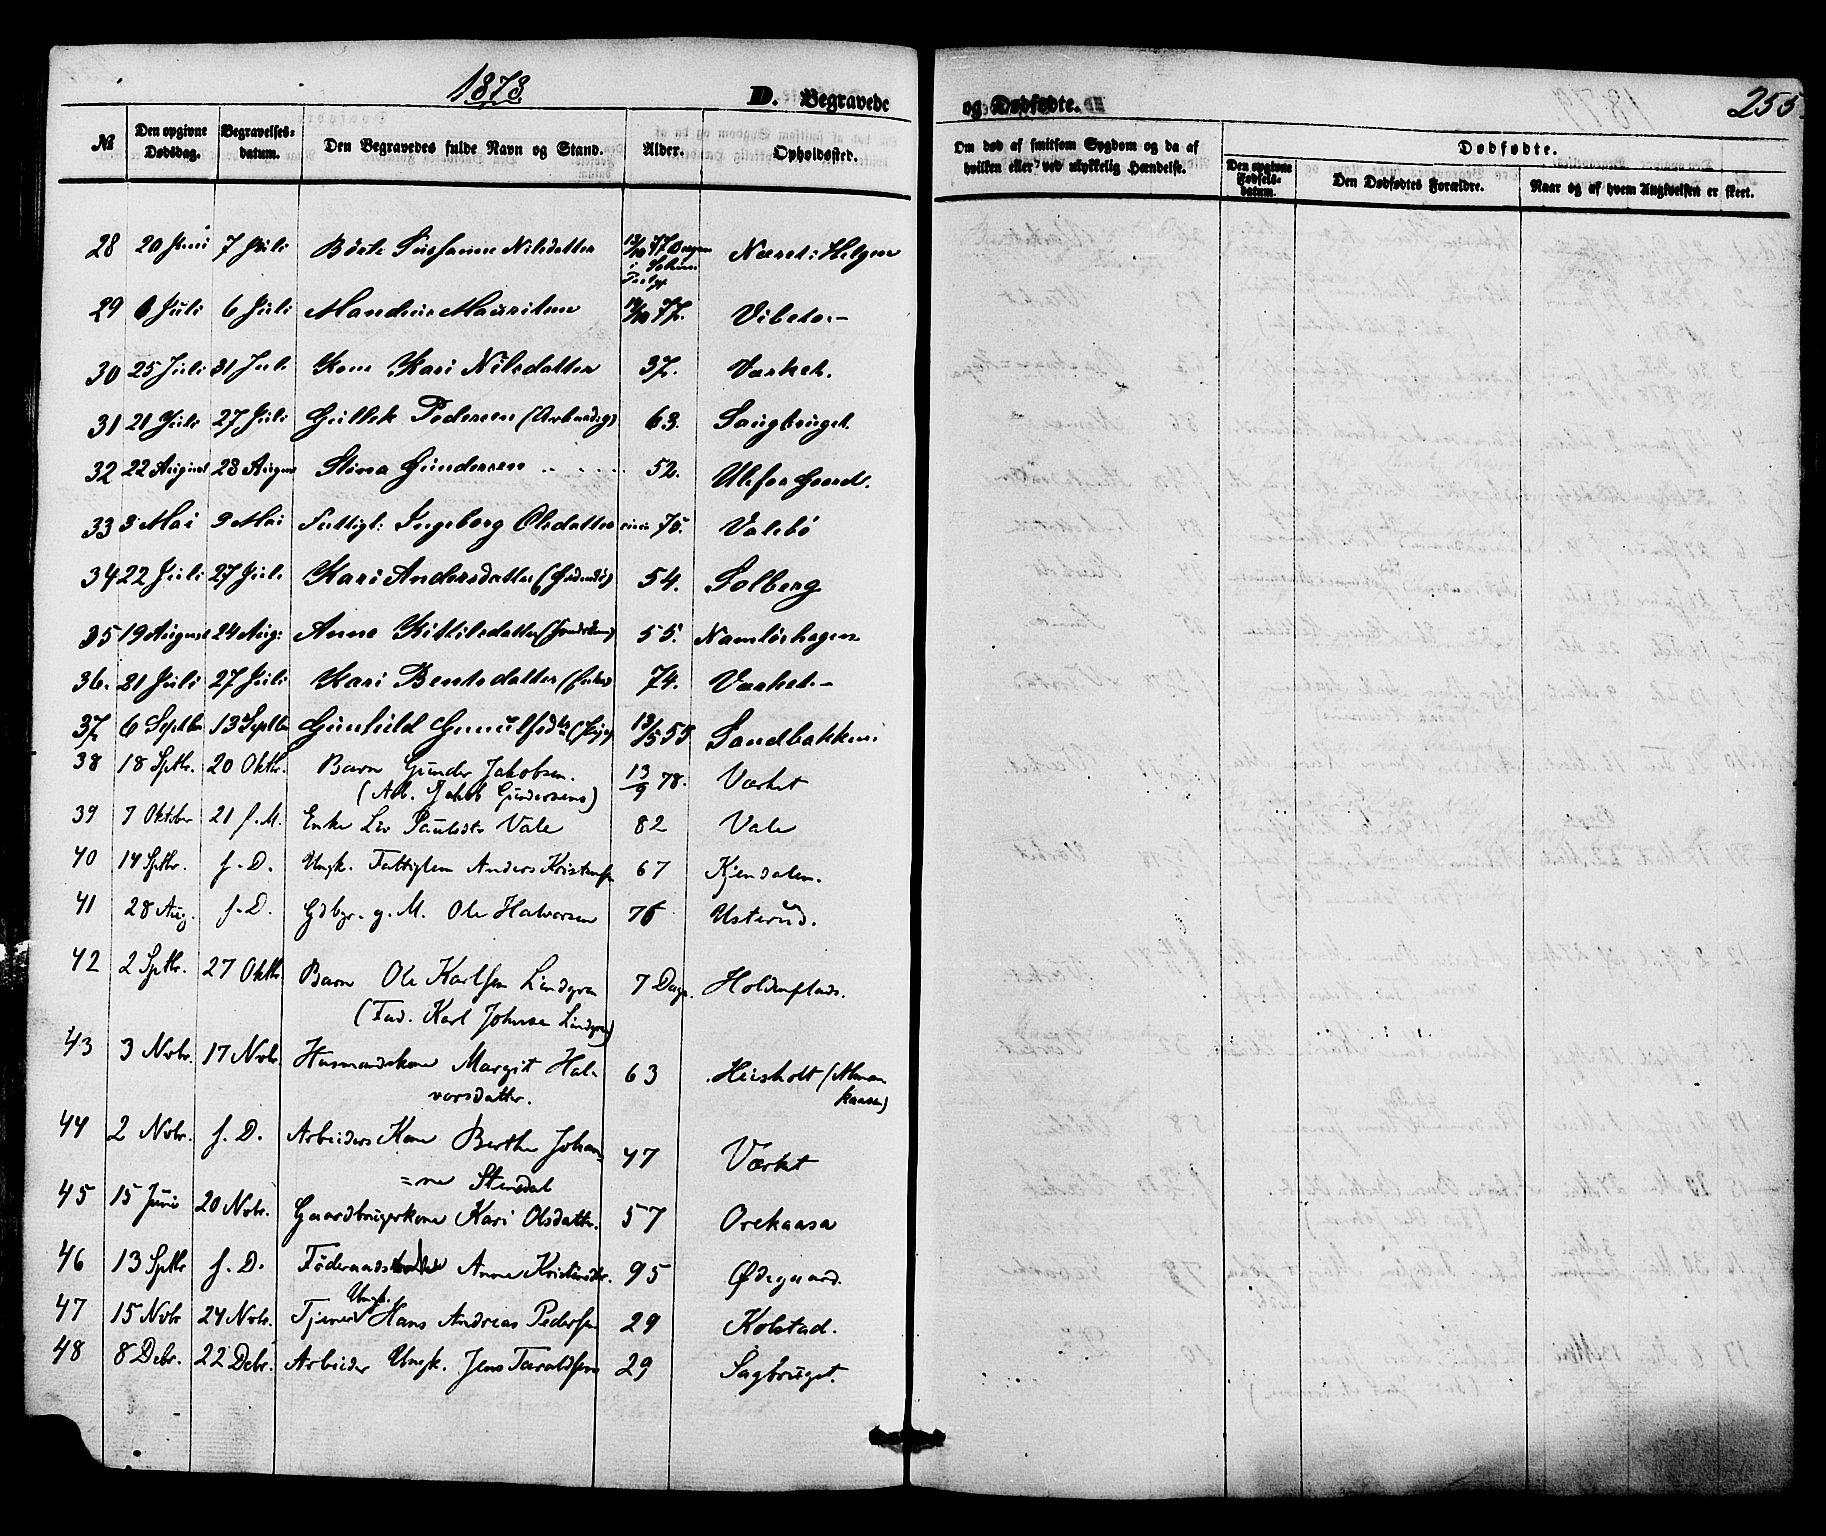 1878.
D. Begravede
og Dødfødte.
255.
№
Den opgivne Dødsdag.
Begravelses-datum.
Den Begravedes fulde Navn og Stand.
Alder.
Opholdssted.
Om død af smitsom Sygdom og da af hvilken eller ved ulykkelig Hændelse.
Dødfødte.
Den opgivne Fødsels-datum.
Den Dødfødtes Forældre.
Naar og af hvem Angivelsen er skeet.
28 20 Juni 7 Juli Nilsdatter 77
29 6 Juli 77. Vibeto.-
30 25 Juli 31 Juli Kone Kari Nilsdatter 37. Værket.
31 21 Juli 27 Juli Gullek Pedersen 63. Saugbruget.
32 22 August 28 August Stina Gundersen 52. Ulefos Gaard.
33 3 Mai 9 Mai Fattigl: Ingeborg Olsdatter circa 75. Valebø
34 22 Juli 27 Juli Kari Andersdatter 54. Solberg
35 19 August 24 Aug: Anne Kittilsdatter 55. Namløshagen
36. 21 Juli 27 Juli Kari Bentsdatter 74. Værket.-
37 6 Septbr 13 Septbr 13/5 55 Sandbakken
38 18 Sptbr. 20 Oktbr. Barn Gunder Jakobsen. 13/9 78. Værket
(Arb. Jakob Gundersens)
39 7 Oktober 21 f. M. Enke Liv Paulsdtr Vale 82 Vale
40 14 Sptbr. f. D. Ungk. Fattiglem Anders Kristensen 67 Kjendalen.
41 28 Aug. f. D. Gdbgr. g. M. Ole Halvorsen 76 Usterud.
42 2 Sptbr. 27 Oktbr. Barn Ole Karlsen Lindgren 7 Dage. Holdenstads.
(Fad. Karl Johnsen Lindgren)
43 3 Nvbr. 17 Nvbr. Husmandskone Margit Hal-
vorsdattr. 63 Heisholt
44 2 Nvbr. f. D. Arbeiders Kone Berthe Johan=
=ne Stensdal 47 Værket
45 15 Juni 20 Nvbr. Gaardbrugerkone Kari Olsdattr. 57 Orekaasa
46 13 Sptbr f. D. Anne Kristensdtr. 95 Ødegaard.
47 15 Nvbr 24 Nvbr. Tjener Ungk. Hans Andreas Pedersen 29 Kolstad.
48 8 Debr. 22 Debr. Arbeider Ungk. Jens Taraldsen 29 Sagbruget.